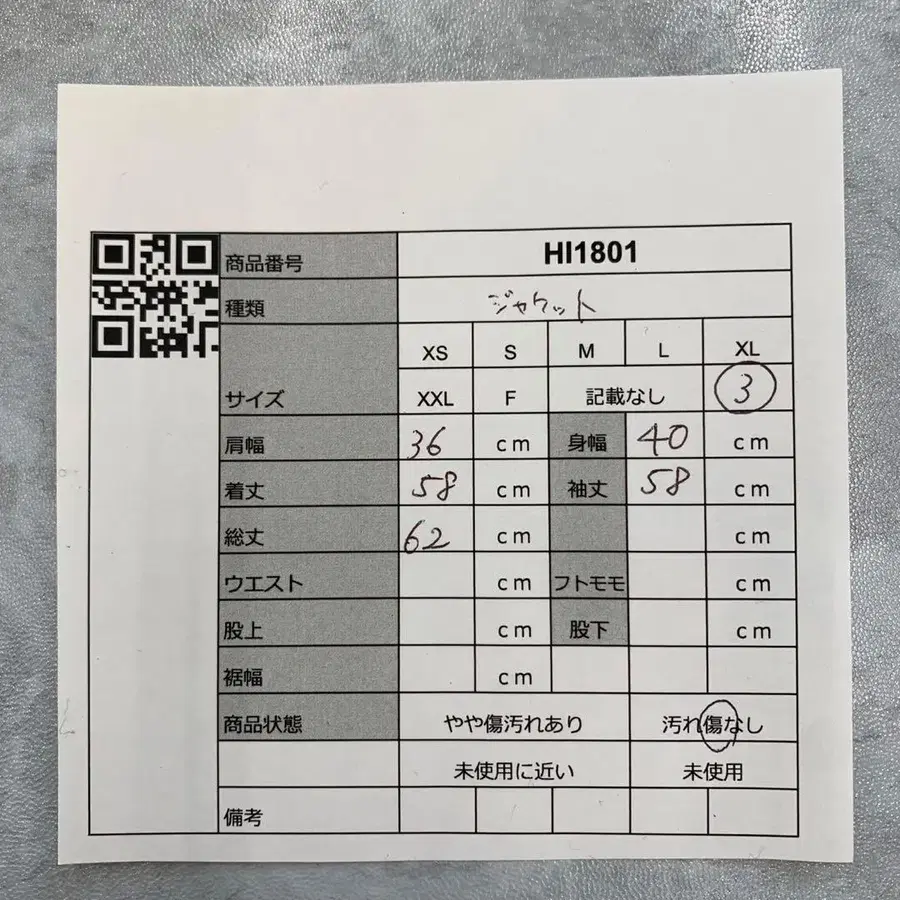 商品番号 HI1801
種類 ジャケット
XS S M L XL
サイズ XXL F 記載なし 3
肩幅 36 cm 身幅 40 cm
着丈 58 cm 袖丈 58 cm
総丈 62 cm cm
ウエスト cm フトモモ cm
股上 cm 股下 cm
裾幅 cm
商品状態 やや傷汚れあり 汚れ傷なし
未使用に近い 未使用
備考